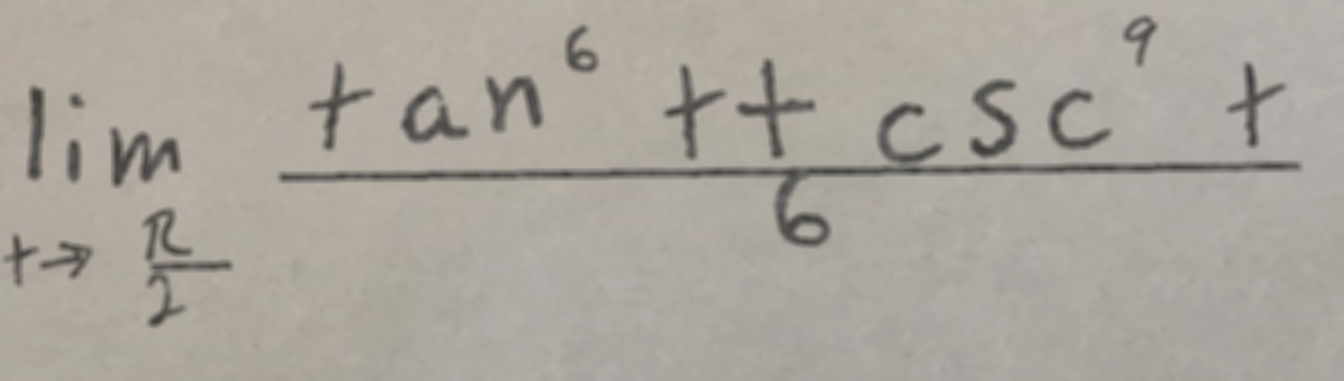 lim t→π/2 (tan⁶ t + csc⁹ t)/6